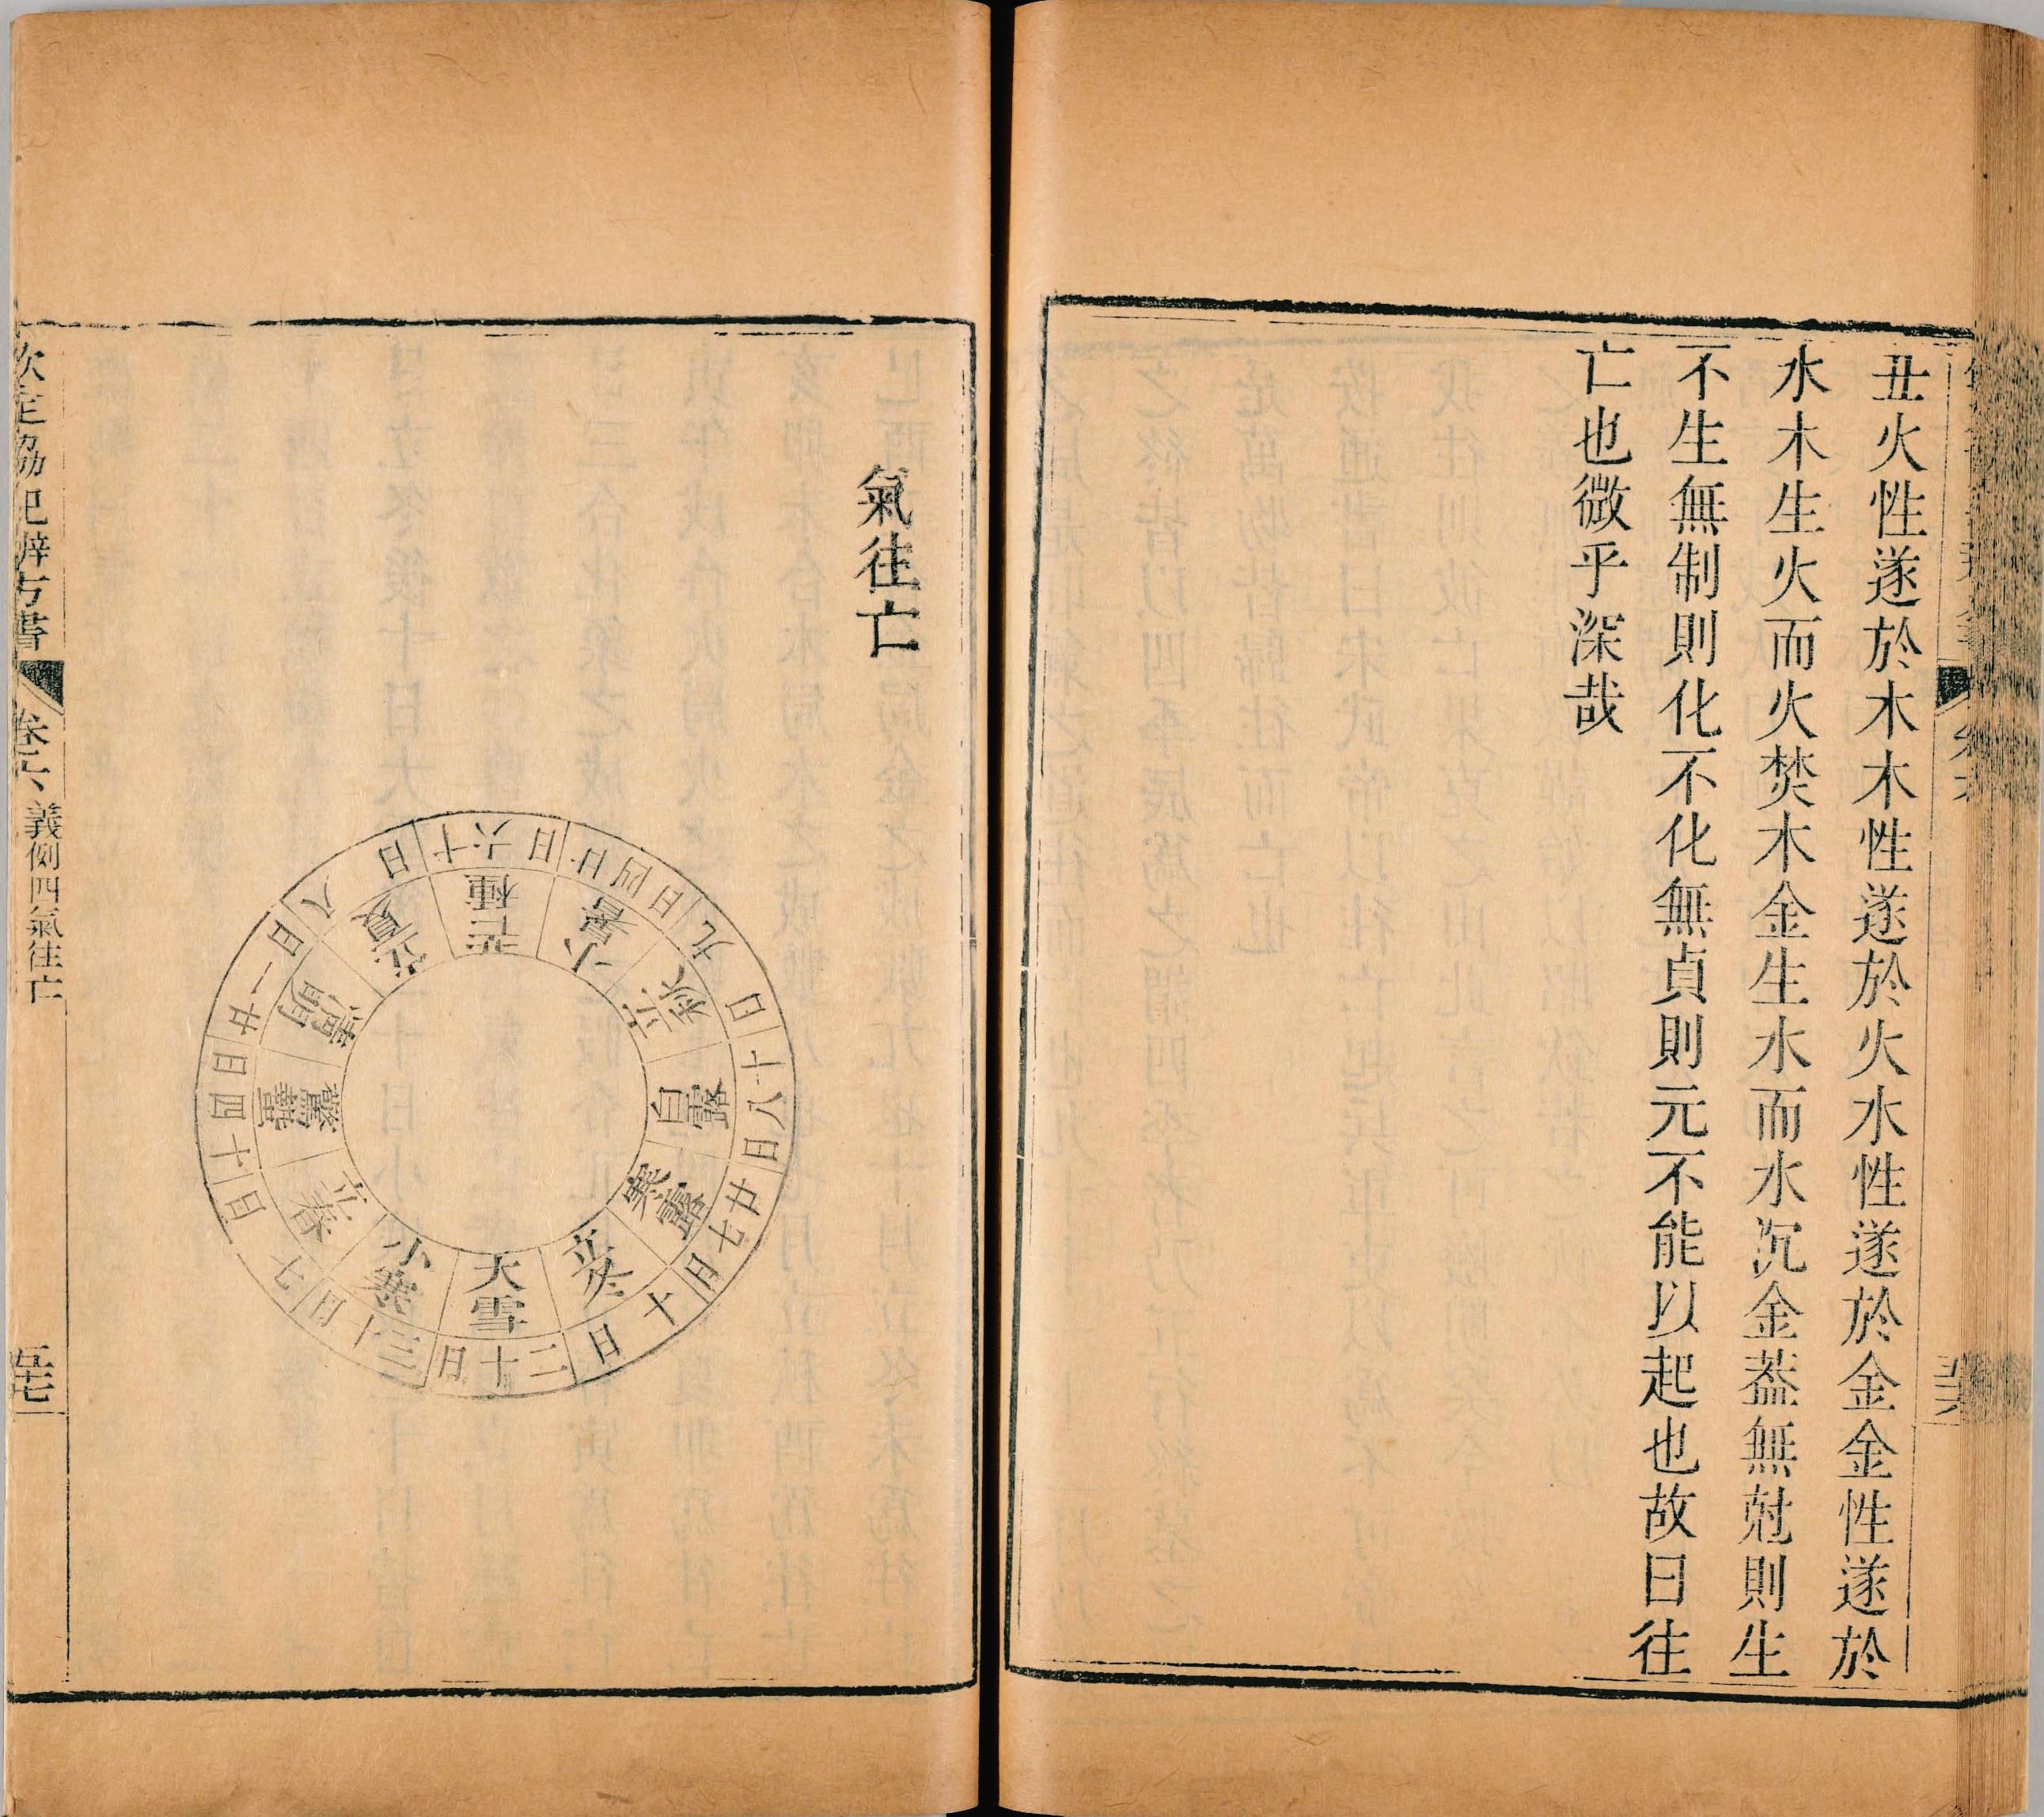 丑火性遂於木木性遂於火水性遂於金金性遂於
水木生火而火焚木金生水而水沉金葢無尅則生
不生無制則化不化無貞則元不能以起也故曰往
亡也微乎深哉
氣往亡
立春
七日
驚蟄
十四日
清明
廿一日
立夏
八日
芒種
十六日
小暑
廿四日
立秋
九日
白露
十八日
寒露
廿七日
立冬
十日
大雪
二十日
小寒
三十日
欽定協紀辨方書
卷六
義例四氣往亡
五十七